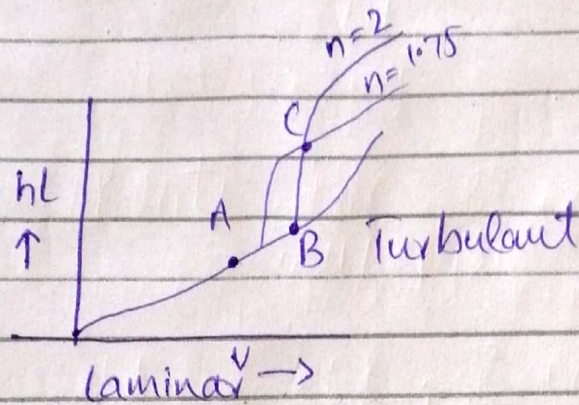 n=2
n= 1.75
C
hL
↑
A
B
Turbulant
V
laminar →